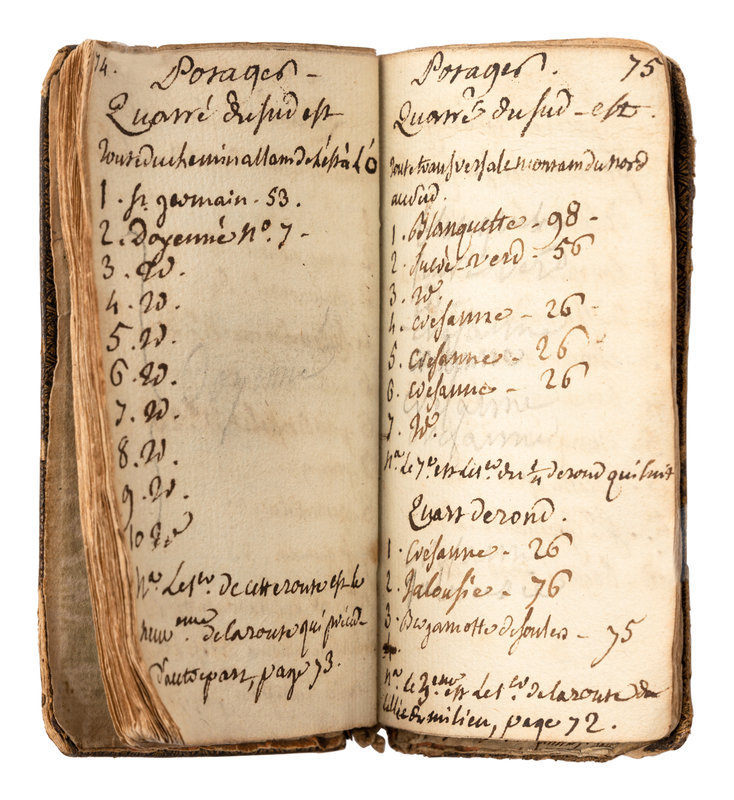 74.
Potages -
Quarré du sud est
routeduchemin allant de L'est à L'O
1. st. germain - 53.
2. Doyenné No. 7 -
3. id.
4. id.
5. id.
6. id.
7. id.
8. id.
9. id.
10 id
Na. Le 1er. de cette route est le
neuveme. de la route qui précéd-
d'autre part, page 73.
75
Potages.
Quarré du sud - est.
route transversale montant du nord
au sud.
1. Blanquette - 98 -
2. verd - 56
3. id.
4. Crésanne - 26
5. Crésanne - 26
6. Crésanne - 26
7. id.
Na. Le 7e. est Le 1er. du 1/4 de rond qui suit
Quart de rond.
1. Crésanne - 26
2. Jalousie - 76
3. Bergamotte de soulers - 75
Na. Le 3eme. est Le 1er. de la route de
milieu, page 72.